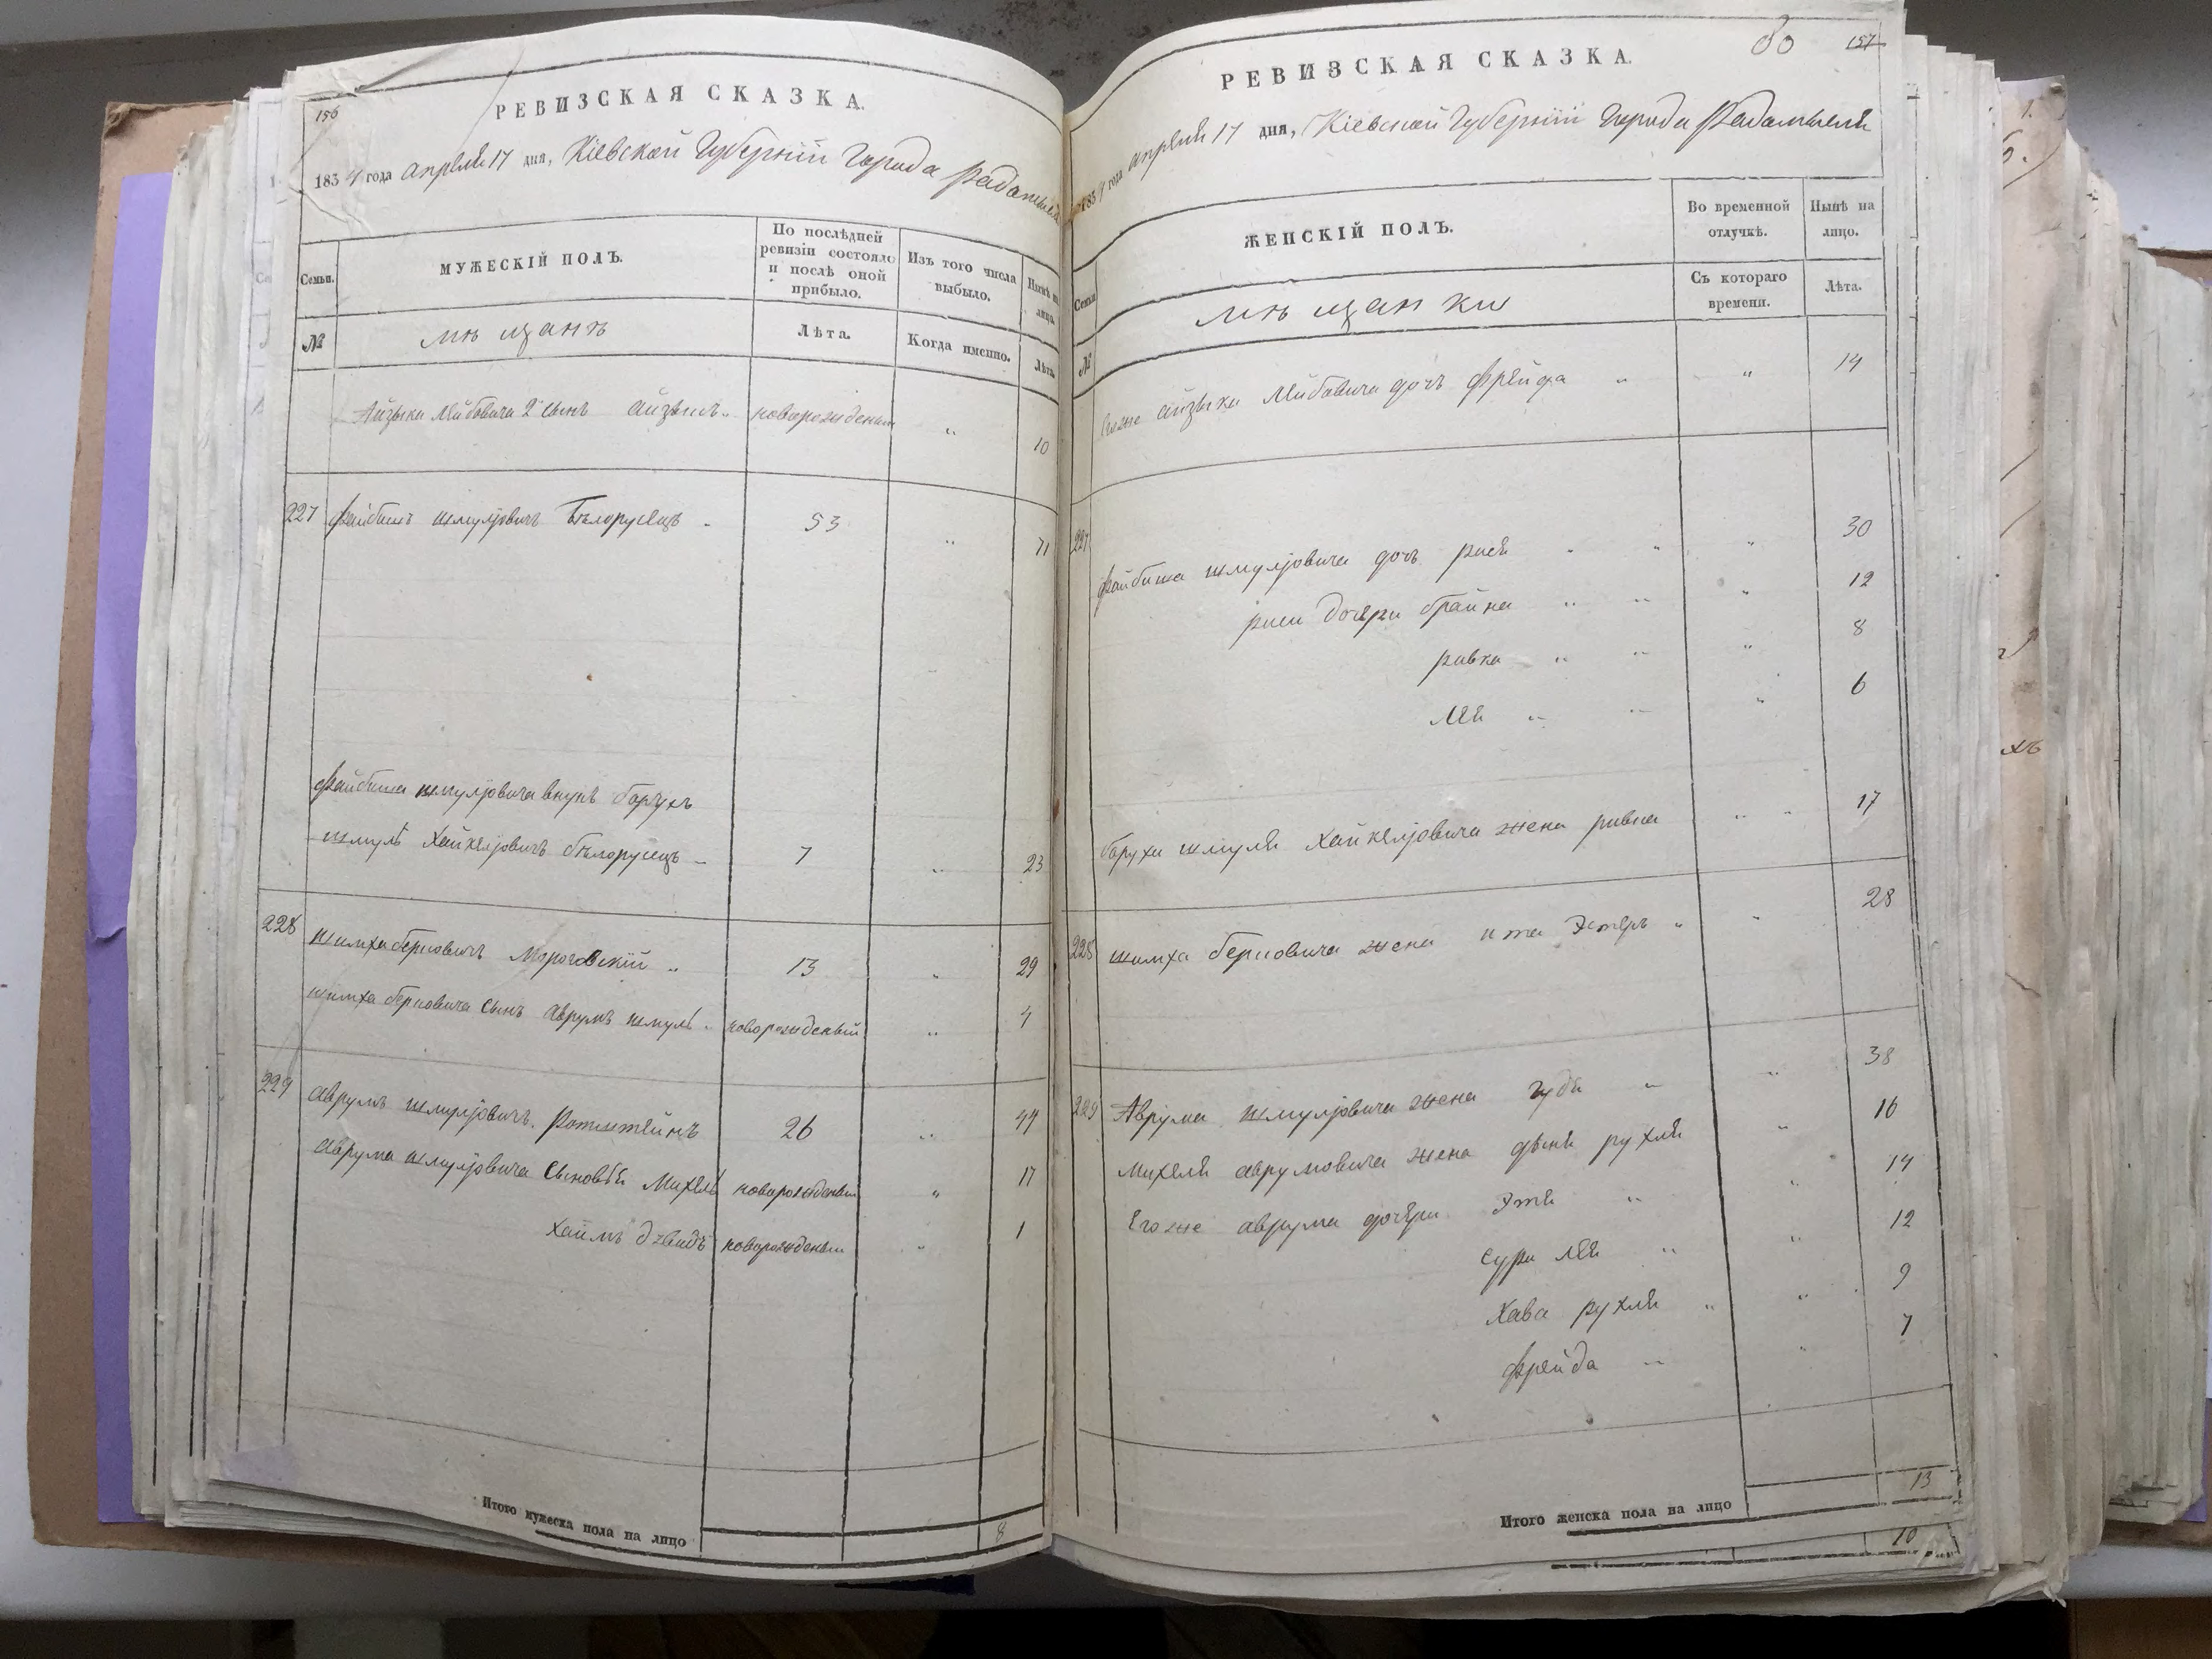 156
РЕВИЗСКАЯ СКАЗКА.
1834 года апреля 17 дня, Кіевской Губерніи Города Радомысля
Семьи.
МУЖЕСКІЙ ПОЛЪ.
По послѣдней ревизіи состояло и послѣ оной прибыло.
Изъ того числа выбыло.
Нынѣ на лицо.
№
мѣщанъ
Лѣта.
Когда именно.
Лѣта.
Айзыка Лейбовича 2й сынъ айзикъ новорожденый " 10
227 файбишъ шмулjовичъ Бѣлорусецъ 53 " 71
файбиша шмулjовича внукъ борухъ
шмуль Хайкелjовичъ бѣлорусецъ 7 " 23
228 шимха берковичъ Мороговскій 13 " 29
шимха берковича сынъ аврумъ шмуль новорожденый " 4
229 аврумъ шмулjовичъ Ротштейнъ 26 " 44
аврума шмулjовича сыновья Михель новорожденый " 17
хаимъ дэвидъ новорожденый " 1
Итого мужеска пола на лицо 8
80 157
РЕВИЗСКАЯ СКАЗКА.
1834 года апреля 17 дня, Кіевской Губерніи Города Радомысля
Семьи.
ЖЕНСКІЙ ПОЛЪ.
Во временной отлучкѣ.
Нынѣ на лицо.
№
мѣщанки
Съ котораго времени.
Лѣта.
айзыка Лейбовича дочь фрейда " " 14
227 файбиша шмулjовича дочь рися " " 30
риси дочери брайна " " 12
ривка " " 8
Лея " " 6
боруха шмуля Хайкелjовича жена ривка " " 17
228 шимха берковича жена ита Эстеръ " " 28
229 Аврума шмулjовича жена гудя " " 38
михеля аврумовича жена двыня рухля " 16
Егоже аврума дочери Этя " " 14
сура лея " " 12
Хава рухля " " 9
фрейда " " 7
Итого женска пола на лицо 13
10